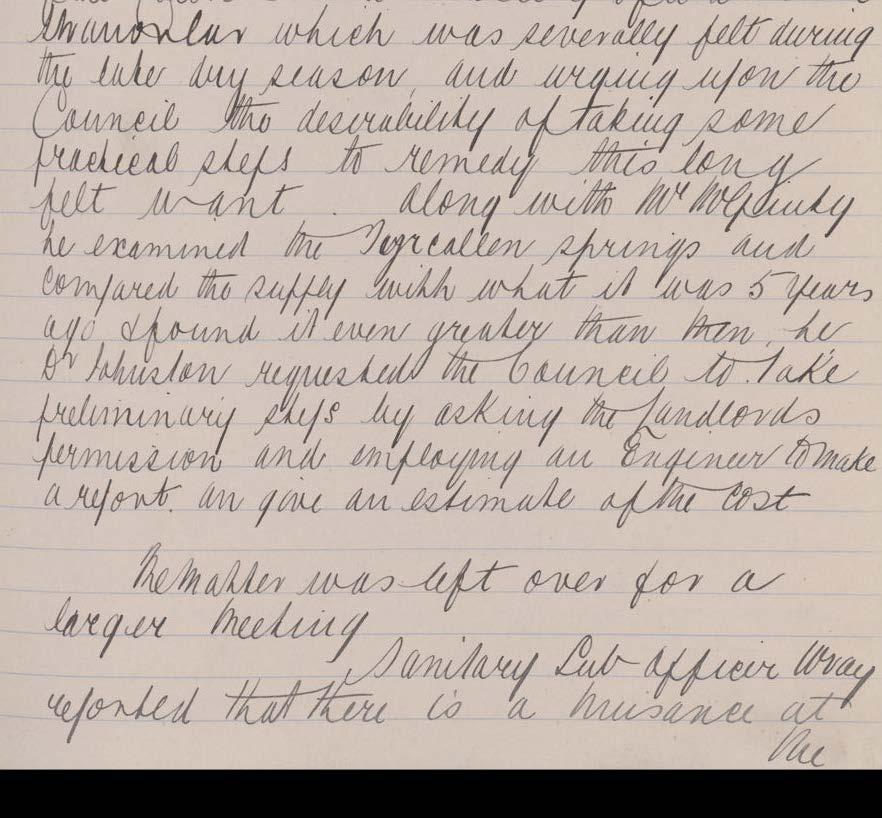 Stranorlar which was severally felt during
the late dry season, and urging upon the
Council the desirability of taking some
practical steps to remedy this long
felt want. Along with Mr McGinty
he examined the springs and
compared the supply with what it was 5 years
ago & found it even greater than then, he
Dr Johnston requested the Council to take
preliminary steps by asking the Landlords
permission and employing an Engineer to make
a report. an give an estimate of the cost
The Matter was left over for a
larger Meeting
Sanitary Sub Officer Wray
reported that there is a nuisance at
the